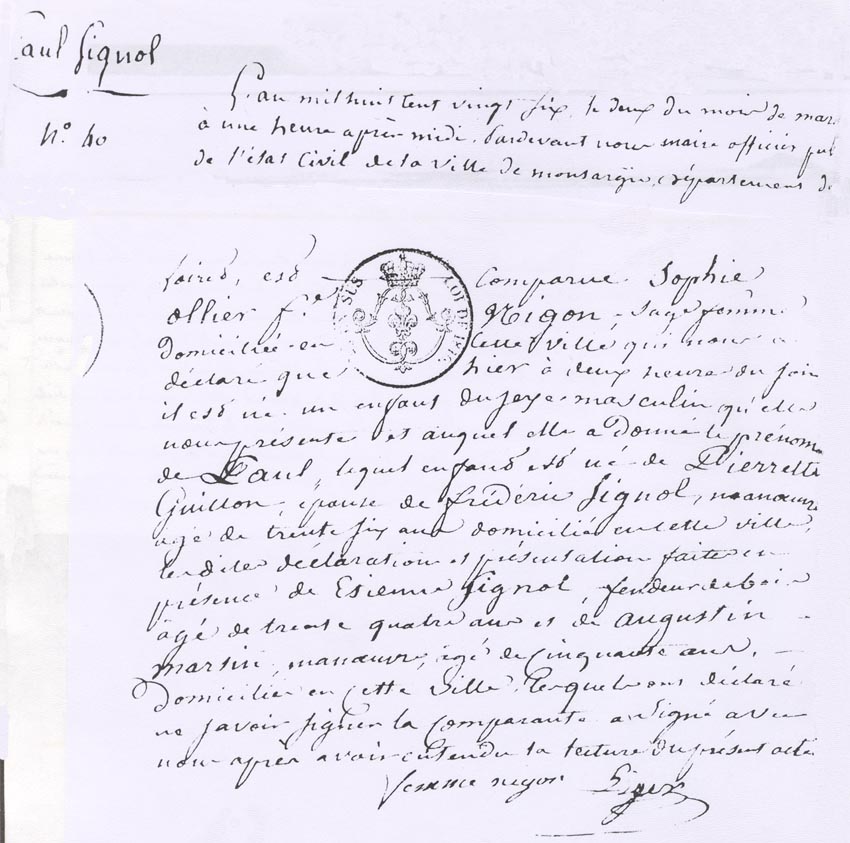 Paul Signol
N.° 40
L'an mil huit cent vingt six, le deux du mois de mar
à une heure après-midi. Pardevant nous maire officier pub
de l'état Civil de la Ville de montargis, département de
Loiret, est comparue Sophie
ollier f.e Nigon, sage femme
Domiciliée en cette ville, qui nous a
déclaré que hier à deux heure du soir
il est né un enfant du sexe masculin qu'elle
nous présente et auquel elle a donné le prénom
de Paul, lequel enfant est né de Pierrette
Guillon, épouse de frédéric Signol, manœuvre
agé de trente six ans domicilié en cette ville,
lesdites déclaration et présentation faite en
présence de Etienne Signol, fendeur de bois
âgé de trente quatre ans et de augustin
martin, manœuvre, agé de cinquante ans,
Domiciliés en cette ville lesquels ont déclaré
ne savoir signer la comparante a signé avec
nous après avoir entendu la lecture du présent acte
femme negon